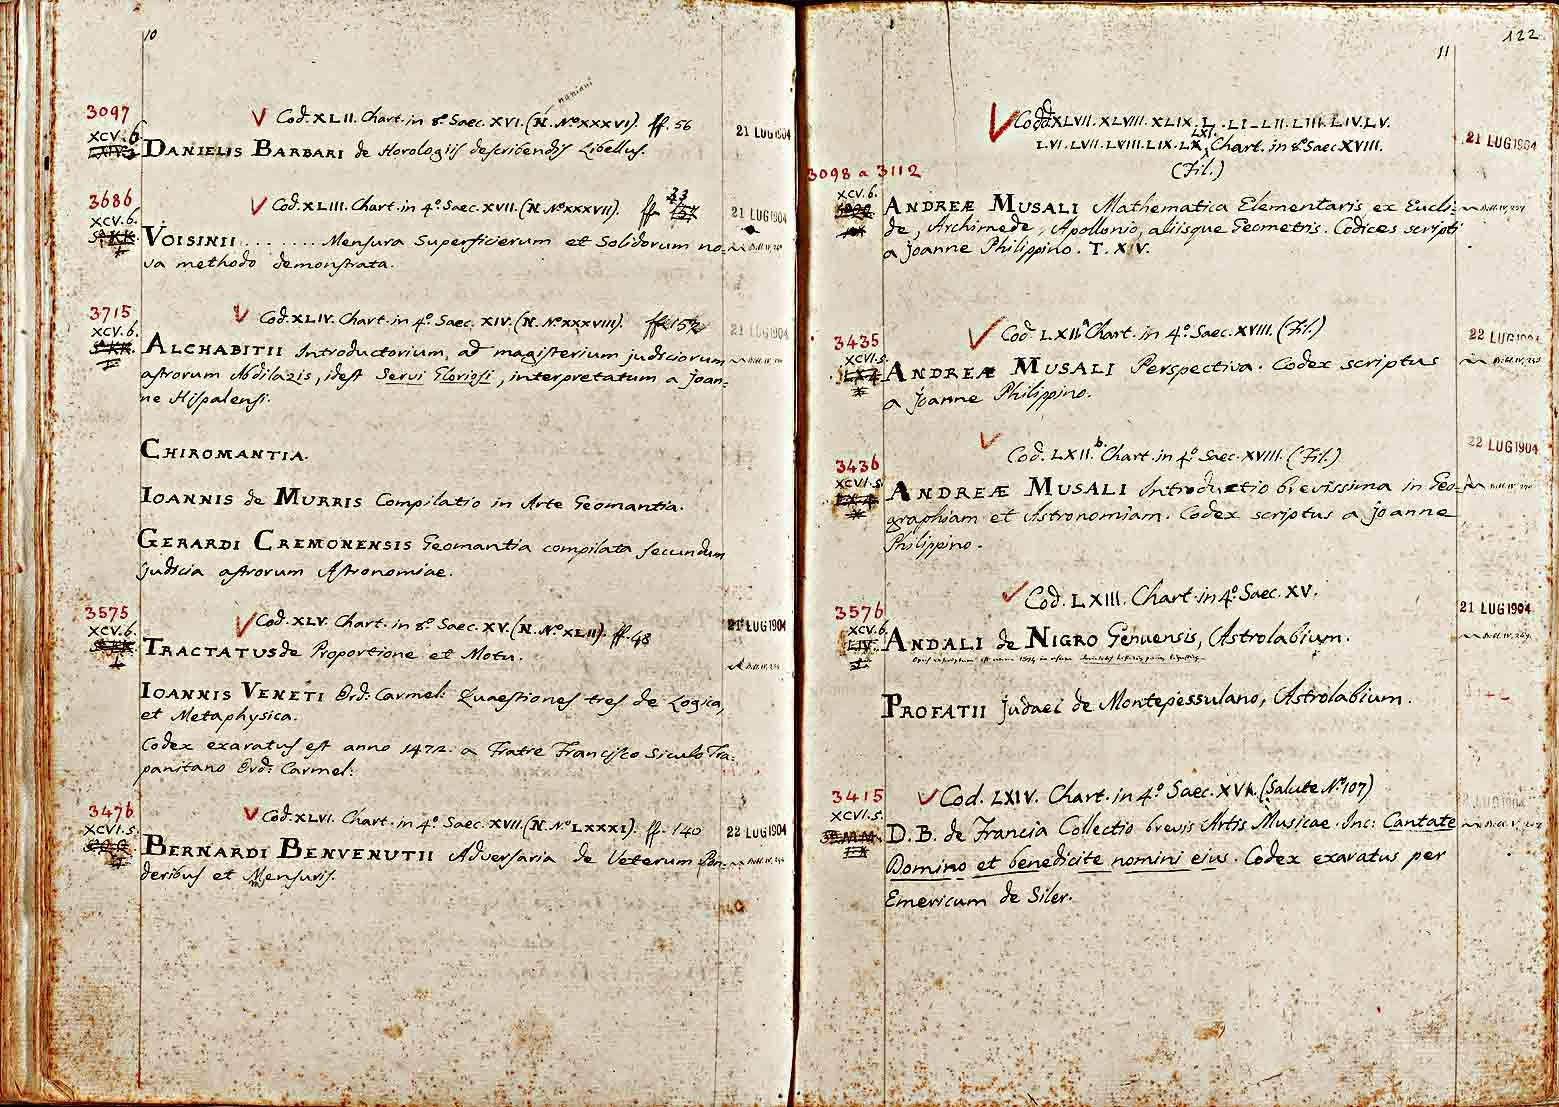 10
naniani
3097
V Cod. XLII. Chart. in 8.º Saec. XVI. (N. Nº XXXVI). ff. 56
21 LUG 1904
XCV. 6.
DANIELIS BARBARI de Horologiis describendis Libellus.
3686
V Cod. XLIII. Chart. in 4.º Saec. XVII. (N. Nº XXXVII). ff. 33
21 LUG 1904
XCV. 6.
VOISINII ........ Mensura Superficierum et Solidorum no-
va methodo demonstrata.
3715
V Cod. XLIV. Chart. in 4.º Saec. XIV. (N. Nº XXXVIII). ff. 152
21 LUG 1904
XCV. 6.
ALCHABITII Introductorium, ad magisterium judiciorum
astrorum Abdilazis, idest Servi Gloriosi, interpretatum a Joan-
ne Hispalensi.
CHIROMANTIA.
IOANNIS de MURRIS Compilatio in Arte Geomantia.
GERARDI CREMONENSIS Geomantia compilata secundum
judicia astrorum Astronomiae.
3575
V Cod. XLV. Chart. in 8.º Saec. XV. (N. Nº XLII). ff. 48
21 LUG 1904
XCV. 6.
TRACTATUS de Proportione et Motu.
IOANNIS VENETI Ord: Carmel: Quaestiones tres de Logica,
et Metaphysica.
Codex exaratus est anno 1472. a Fratre Francisco Siculo Tra-
panitano Ord: Carmel:
3476
V Cod. XLVI. Chart. in 4.º Saec. XVII. (N. Nº LXXXI). ff. 140
22 LUG 1904
XCVI. 5.
BERNARDI BENVENUTII Adversaria de Veterum Pon-
deribus et Mensuris.
122
11
V Codd. XLVII. XLVIII. XLIX. L. LI. LII. LIII. LIV. LV.
21 LUG 1904
LXI.
LVI. LVII. LVIII. LIX. LX. Chart. in 8.º Saec XVIII.
(Fil.)
3098 a 3112
XCV. 6.
ANDREÆ MUSALI Mathematica Elementaris ex Eucli-
de, Archimede, Apollonio, aliisque Geometris. Codices scripti
a Joanne Philippino. T. XIV.
3435
V Cod. LXII.a Chart. in 4.º Saec. XVIII. (Fil.)
22 LUG 1904
XCVI. 5.
ANDREÆ MUSALI Perspectiva. Codex scriptus
a Joanne Philippino.
3436
V Cod. LXII.b Chart. in 4.º Saec. XVIII. (Fil.)
22 LUG 1904
XCVI. 5.
ANDREÆ MUSALI Introductio brevissima in Geo-
graphiam et Astronomiam. Codex scriptus a Joanne
Philippino.
3576
V Cod. LXIII. Chart. in 4.º Saec. XV.
21 LUG 1904
XCV. 6.
ANDALI de NIGRO Genuensis, Astrolabium.
PROFATII Judaei de Montepessulano, Astrolabium.
3415
V Cod. LXIV. Chart. in 4.º Saec. XVI. (Salute Nº 107)
XCVI. 5.
D. B. de Francia Collectio brevis Artis Musicae. Inc: Cantate
Domino et benedicite nomini ejus. Codex exaratus per
Emericum de Siler.